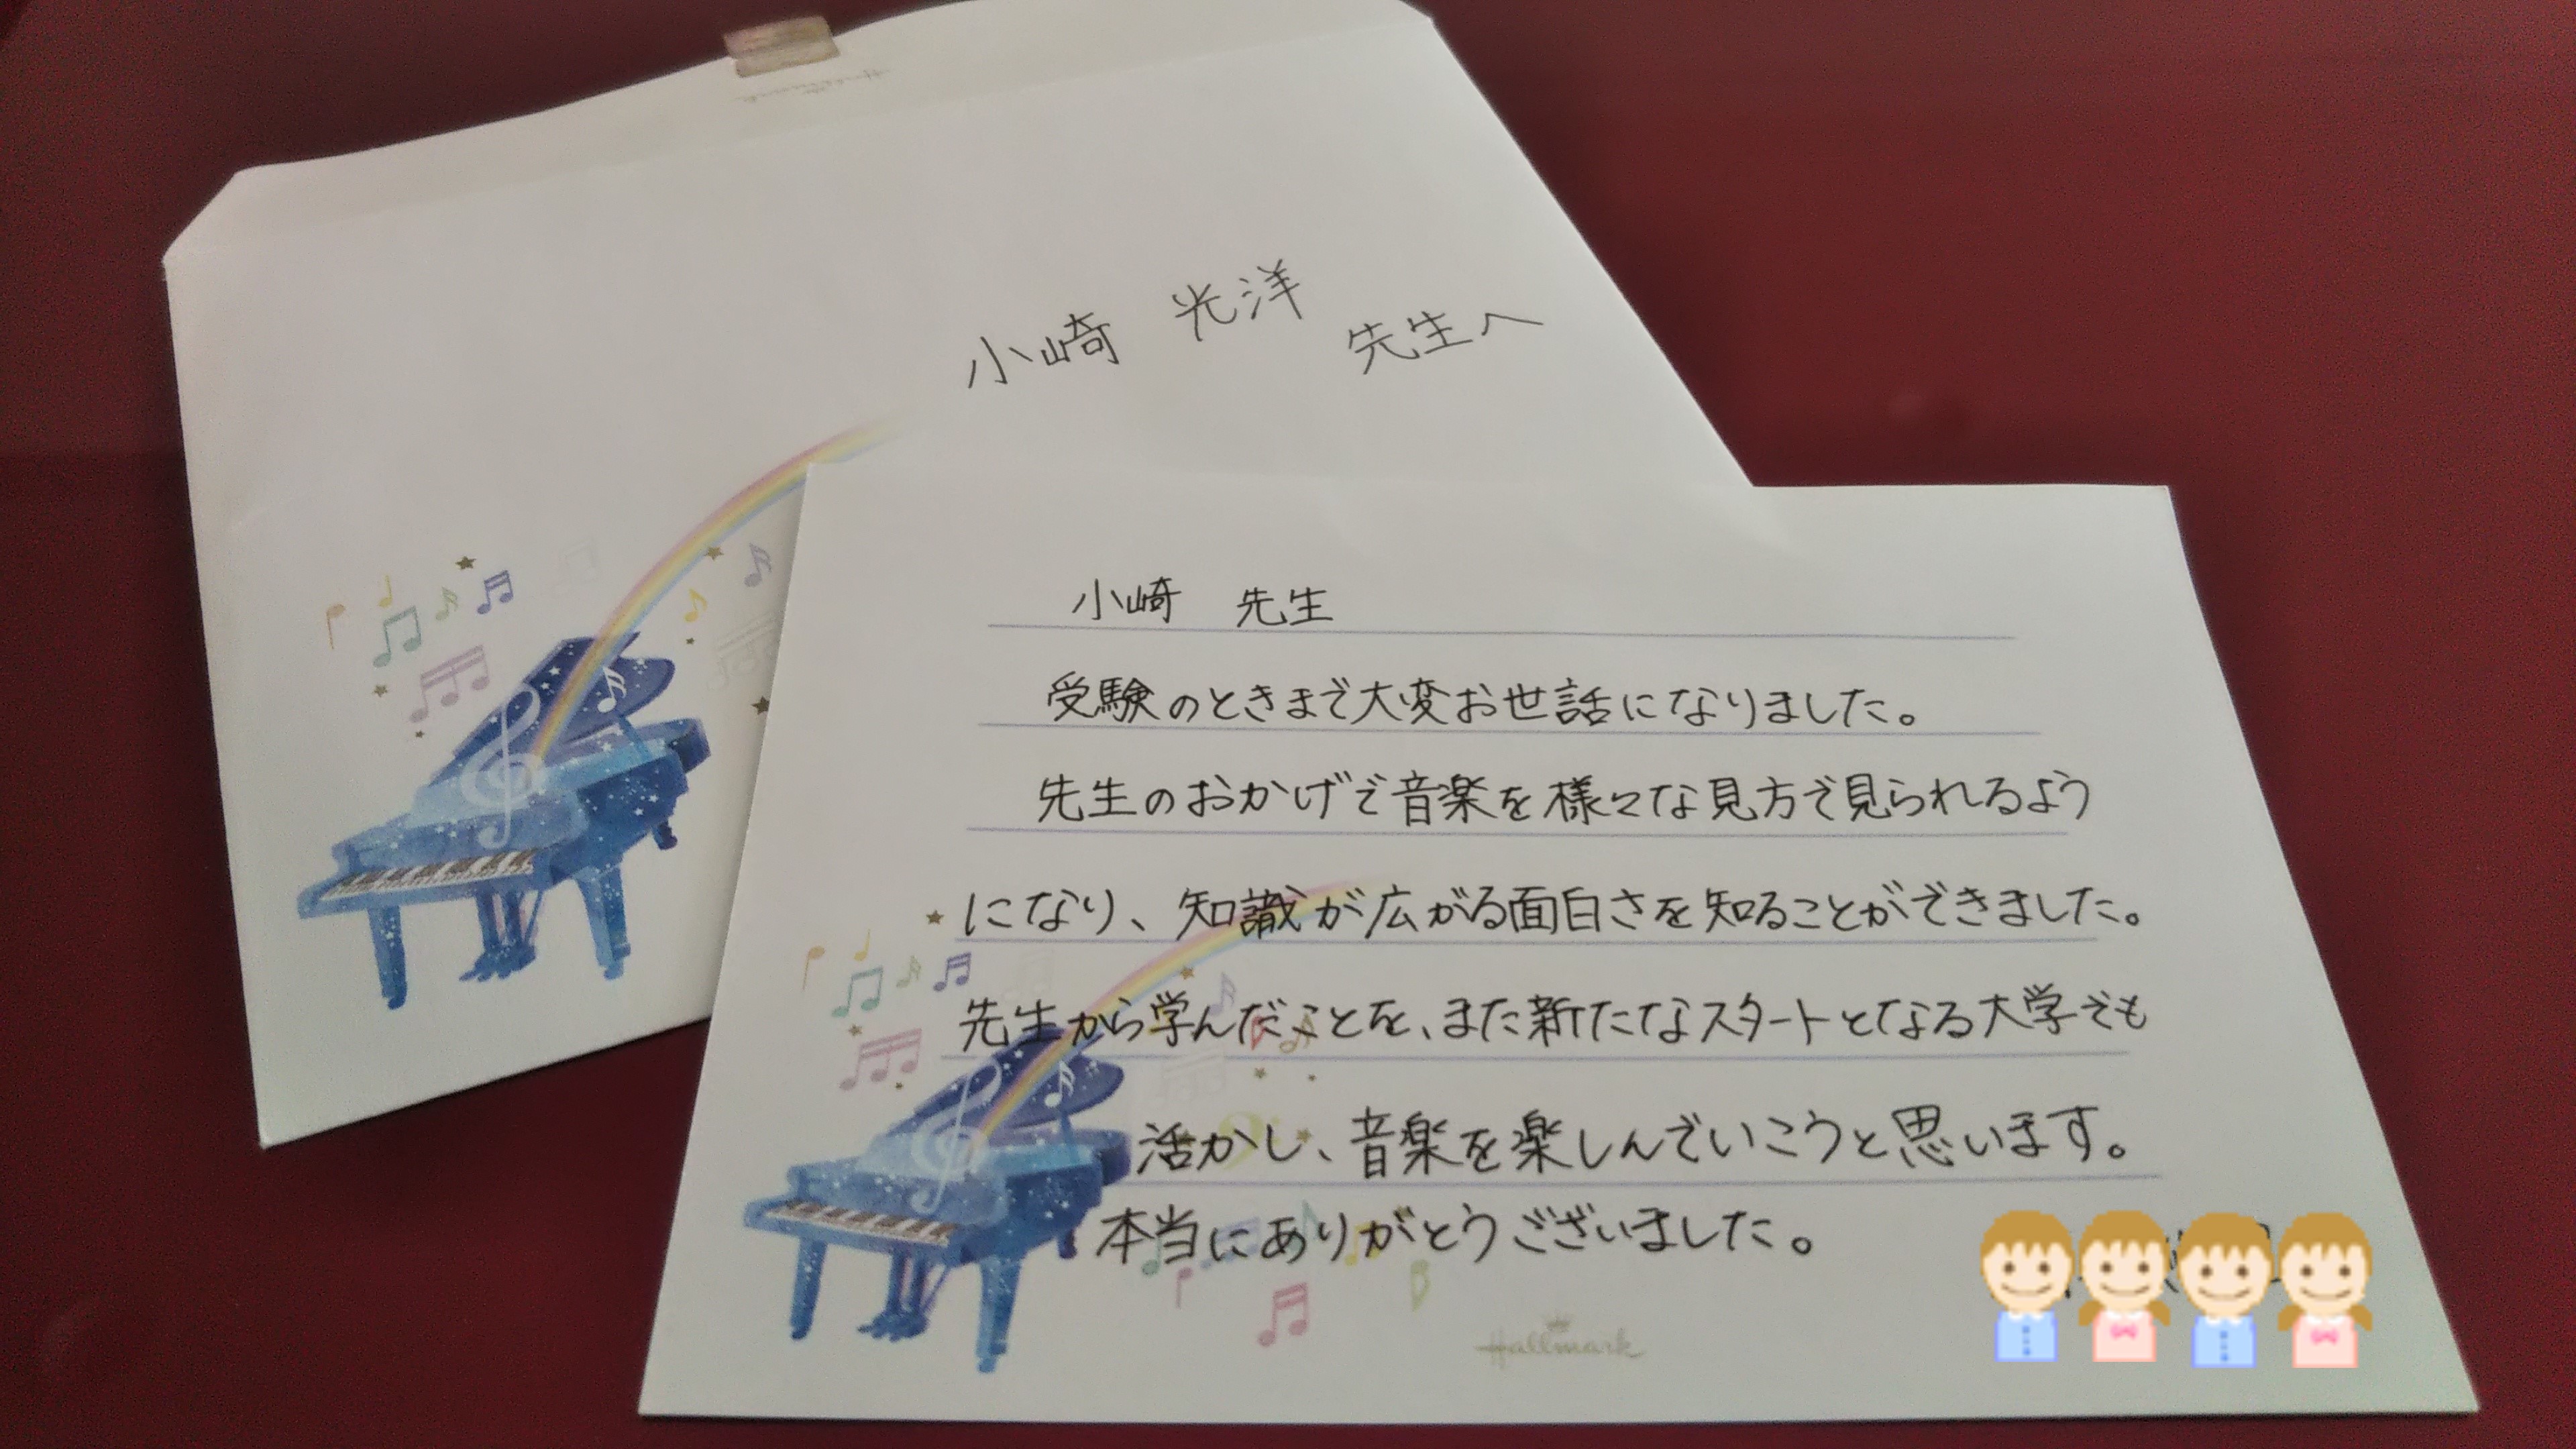 小崎 光洋 先生へ
小崎 先生
受験のときまで大変お世話になりました。
先生のおかげで音楽を様々な見方で見られるよう
になり、知識が広がる面白さを知ることができました。
先生から学んだことを、また新たなスタートとなる大学でも
活かし、音楽を楽しんでいこうと思います。
本当にありがとうございました。
Hallmark